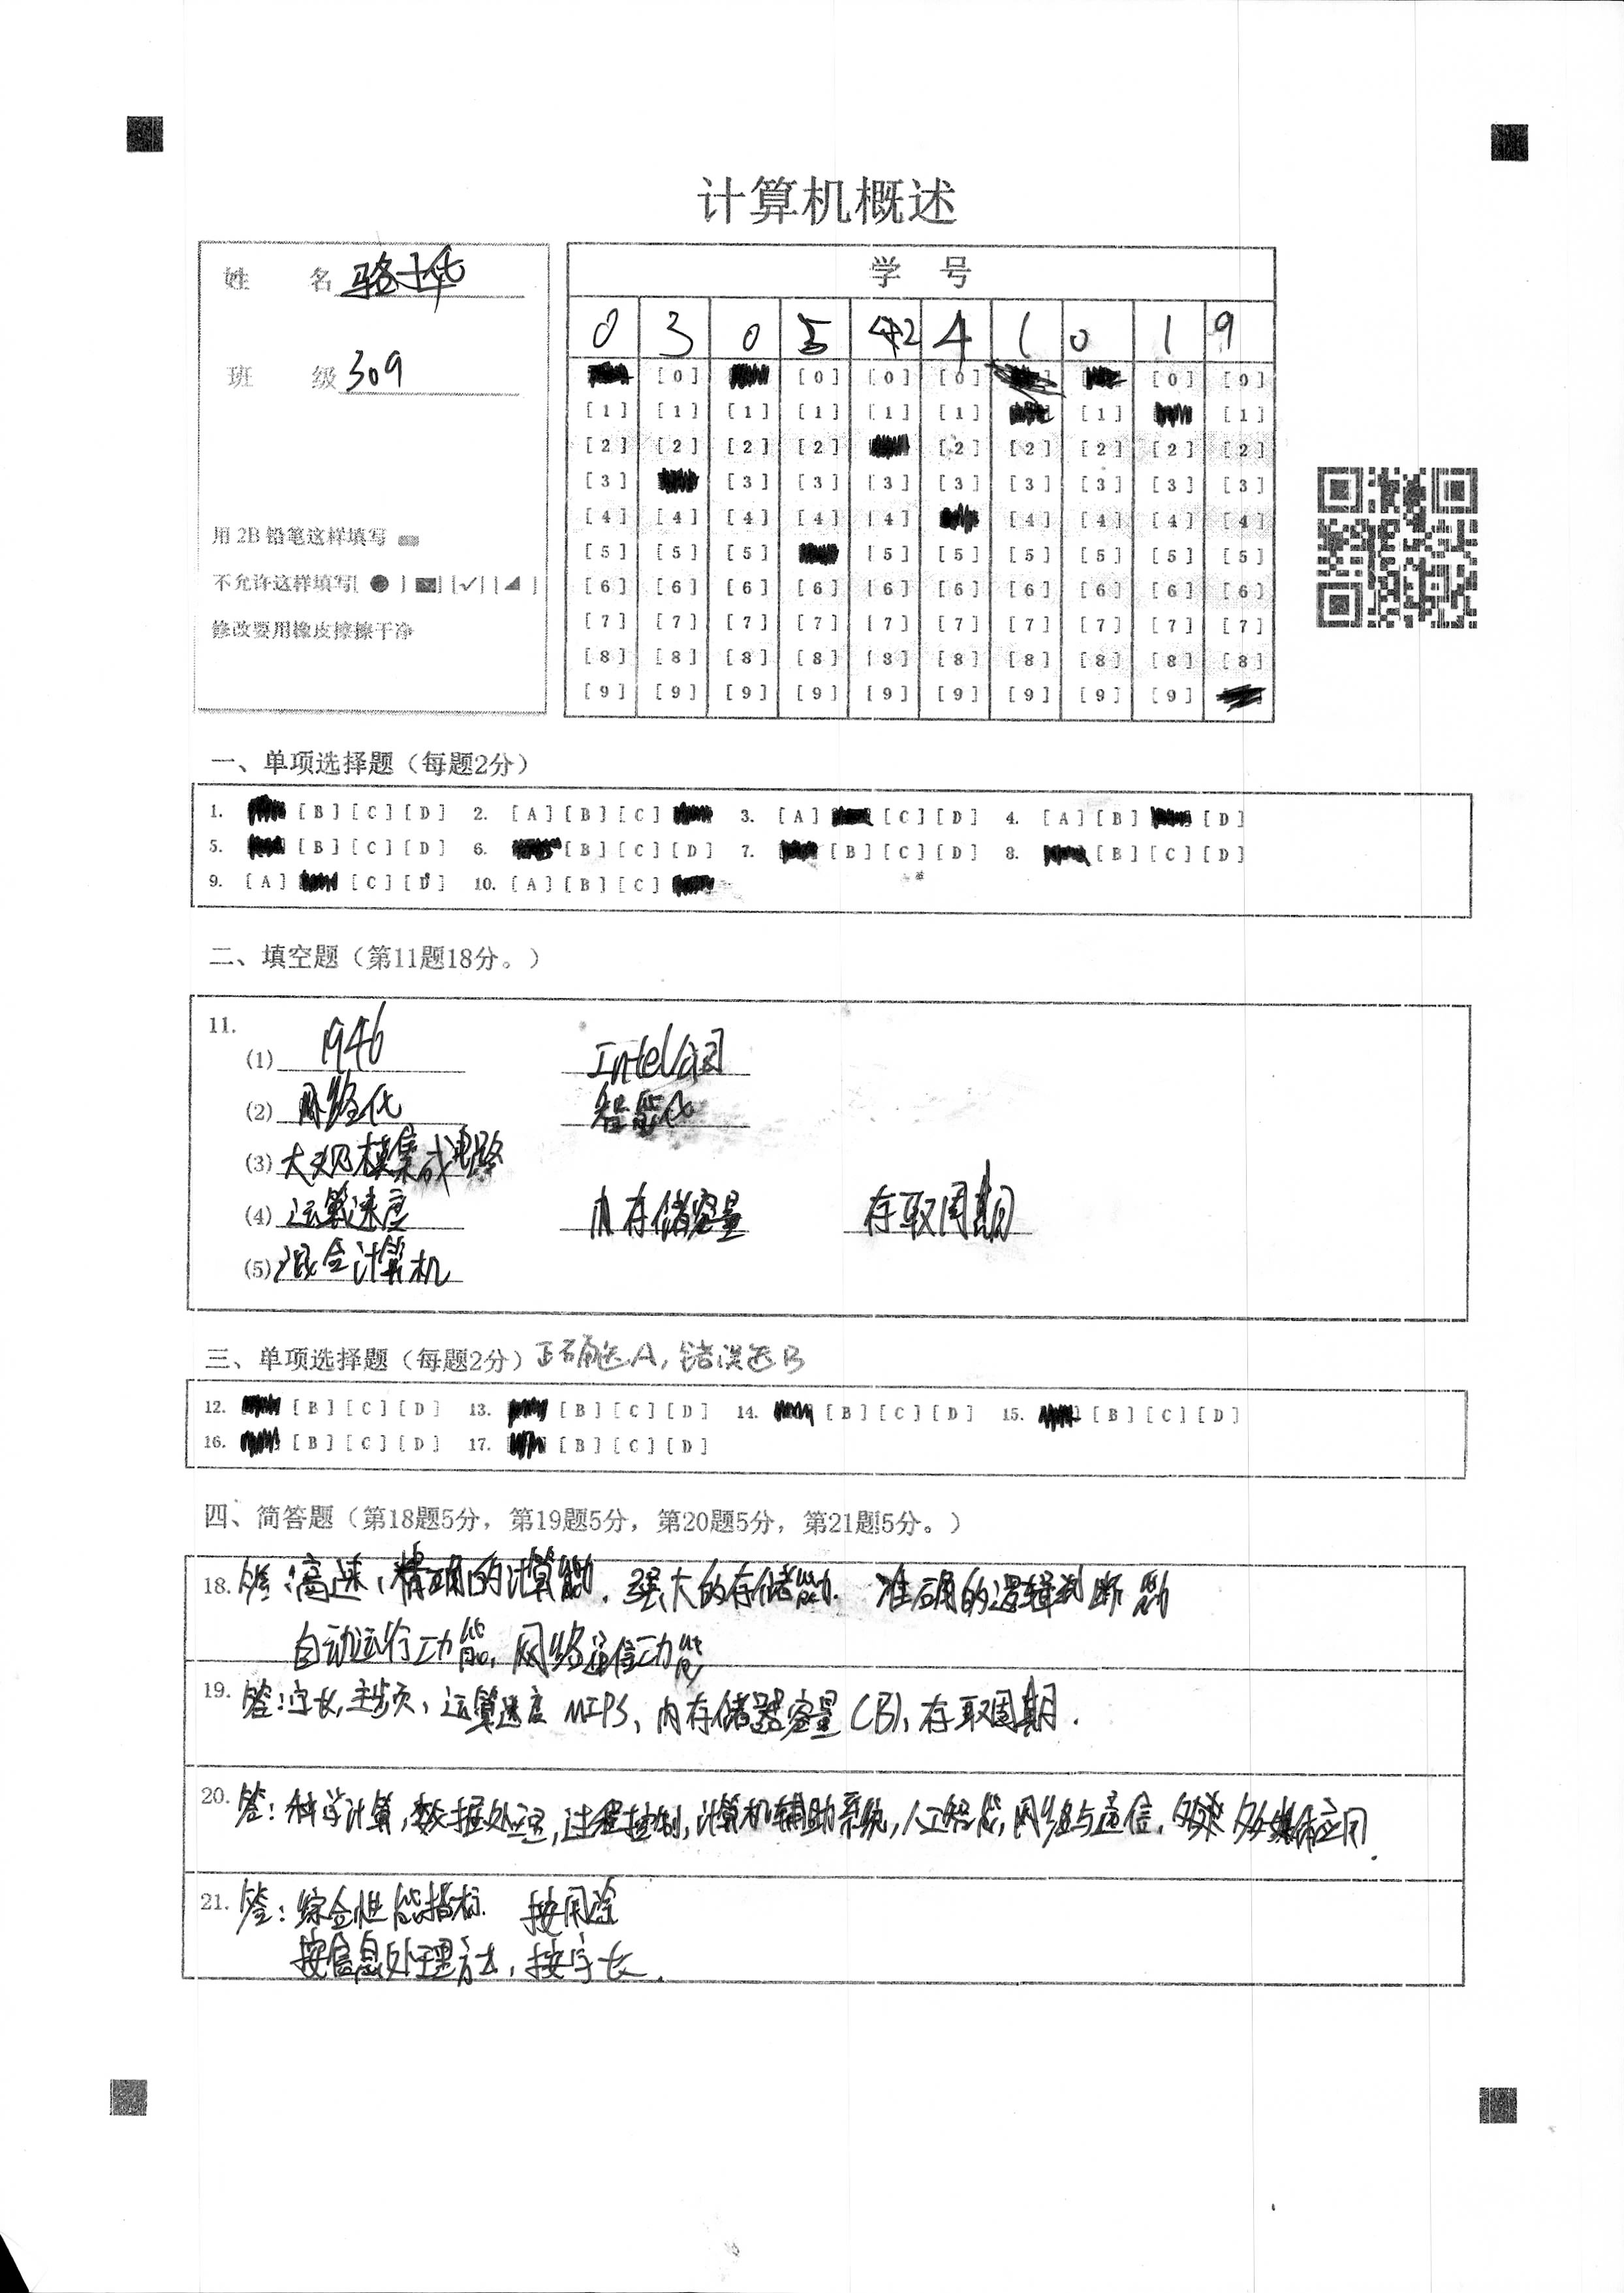 计算机概述
姓 名 骆士华
班 级 309
用 2B 铅笔这样填写
不允许这样填写[ ● ] [ ] [✓] [◢ ]
修改要用橡皮擦擦干净
学 号
0 3 0 5 2 4 1 0 1 9
[0] [0] [0] [0] [0] [0]
[1] [1] [1] [1] [1] [1] [1] [1]
[2] [2] [2] [2] [2] [2] [2] [2] [2]
[3] [3] [3] [3] [3] [3] [3] [3] [3]
[4] [4] [4] [4] [4] [4] [4] [4] [4]
[5] [5] [5] [5] [5] [5] [5] [5] [5]
[6] [6] [6] [6] [6] [6] [6] [6] [6] [6]
[7] [7] [7] [7] [7] [7] [7] [7] [7] [7]
[8] [8] [8] [8] [8] [8] [8] [8] [8] [8]
[9] [9] [9] [9] [9] [9] [9] [9] [9]
一、单项选择题（每题2分）
1. [B] [C] [D] 2. [A] [B] [C] 3. [A] [C] [D] 4. [A] [B] [D]
5. [B] [C] [D] 6. [B] [C] [D] 7. [B] [C] [D] 8. [B] [C] [D]
9. [A] [C] [D] 10. [A] [B] [C]
二、填空题（第11题18分。）
11.
(1) 1946 Intel公司
(2) 网络化 智能化
(3) 大规模集成电路
(4) 运算速度 内存储容量 存取周期
(5) 混合计算机
三、单项选择题（每题2分）正确选A，错误选B
12. [B] [C] [D] 13. [B] [C] [D] 14. [B] [C] [D] 15. [B] [C] [D]
16. [B] [C] [D] 17. [B] [C] [D]
四、简答题（第18题5分，第19题5分，第20题5分，第21题5分。）
18. 答：高速、精确的计算能力. 强大的存储能力. 准确的逻辑判断能力
自动运行功能, 网络通信功能
19. 答：字长, 主频、运算速度 MIPS、内存储器容量(B)、存取周期.
20. 答：科学计算，数据处理，过程控制，计算机辅助系统，人工智能，网络与通信，多媒体应用.
21. 答：综合性能指标. 按用途
按信息处理方法，按字长.